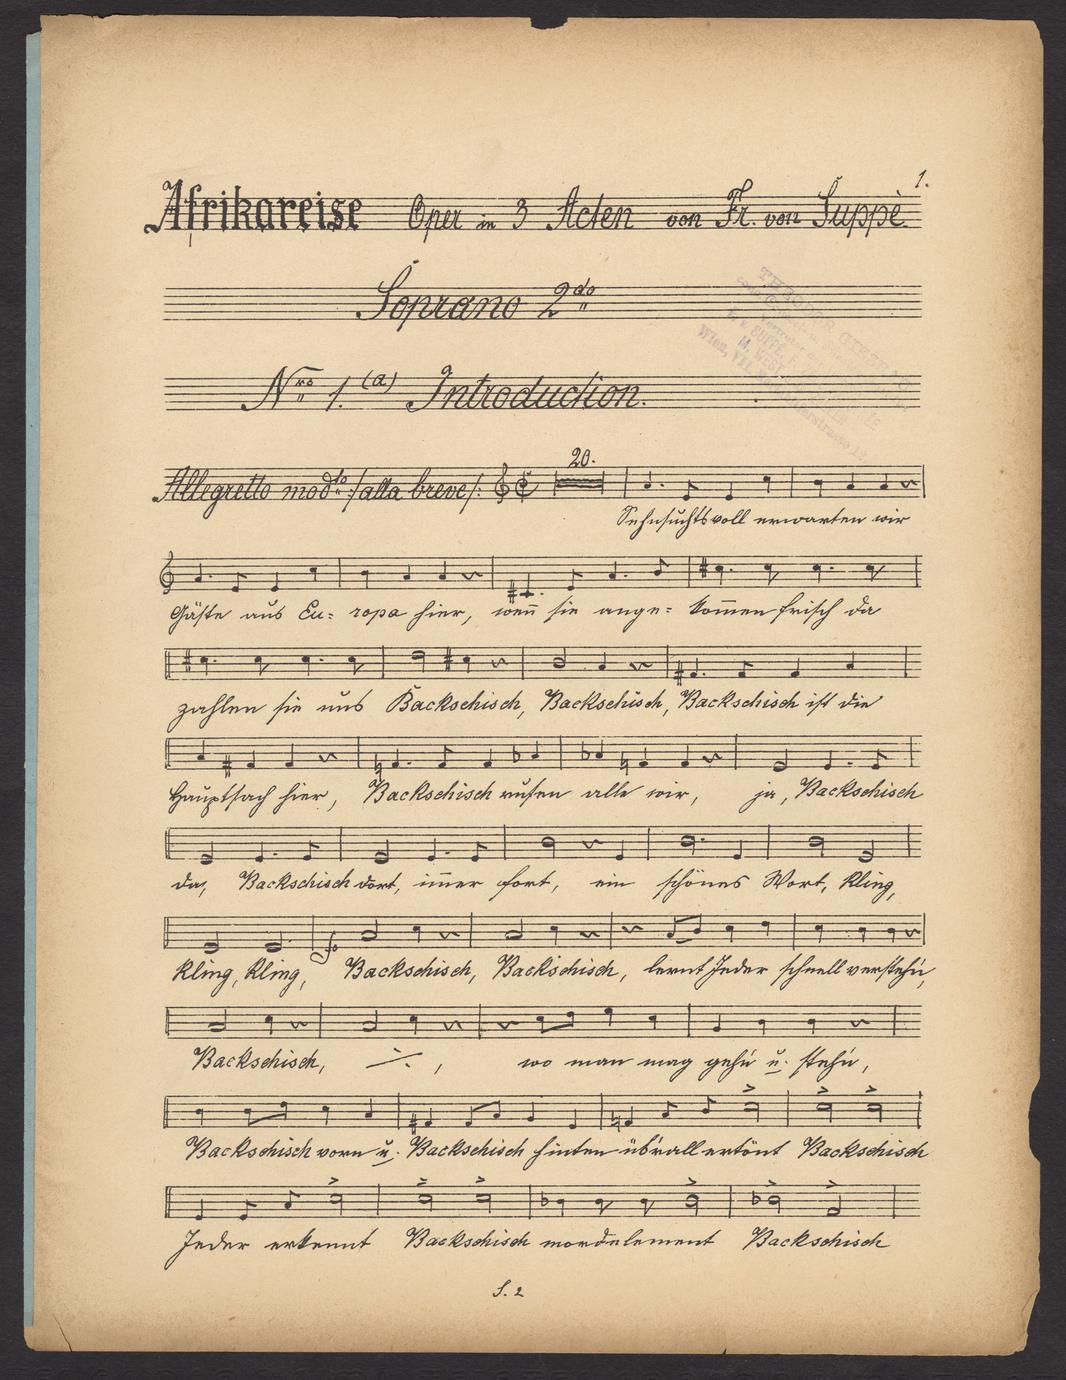 1.
Afrikareise Oper in 3 Acten von Fr. von Suppè.
Soprano 2do
THEODOR
SUPPÉ
M. WEST
Wien, VII.
Nro 1. (a) Introduction.
20.
Allegretto modto /alla breve/:
Sehnsuchtsvoll erwarten wir
Gäste aus Eu= ropa hier, weñ sie ange= kom̄en frisch da
zahlen sie uns Backschisch, Backschisch, Backschisch ist die
Hauptsach hier, Backschisch rufen alle wir, ja, Backschisch
da, Backschisch dort, im̄er fort, ein schönes Wort, Kling,
Kling, Kling, Backschisch, Backschisch, lernt Jeder schnell versteh'n,
Backschisch, ⁒, wo man mag geh'n u. steh'n,
Backschisch vorn u. Backschisch hinten üb'rall ertönt Backschisch
Jeder erkennt Backschisch mordelement Backschisch
S. 2